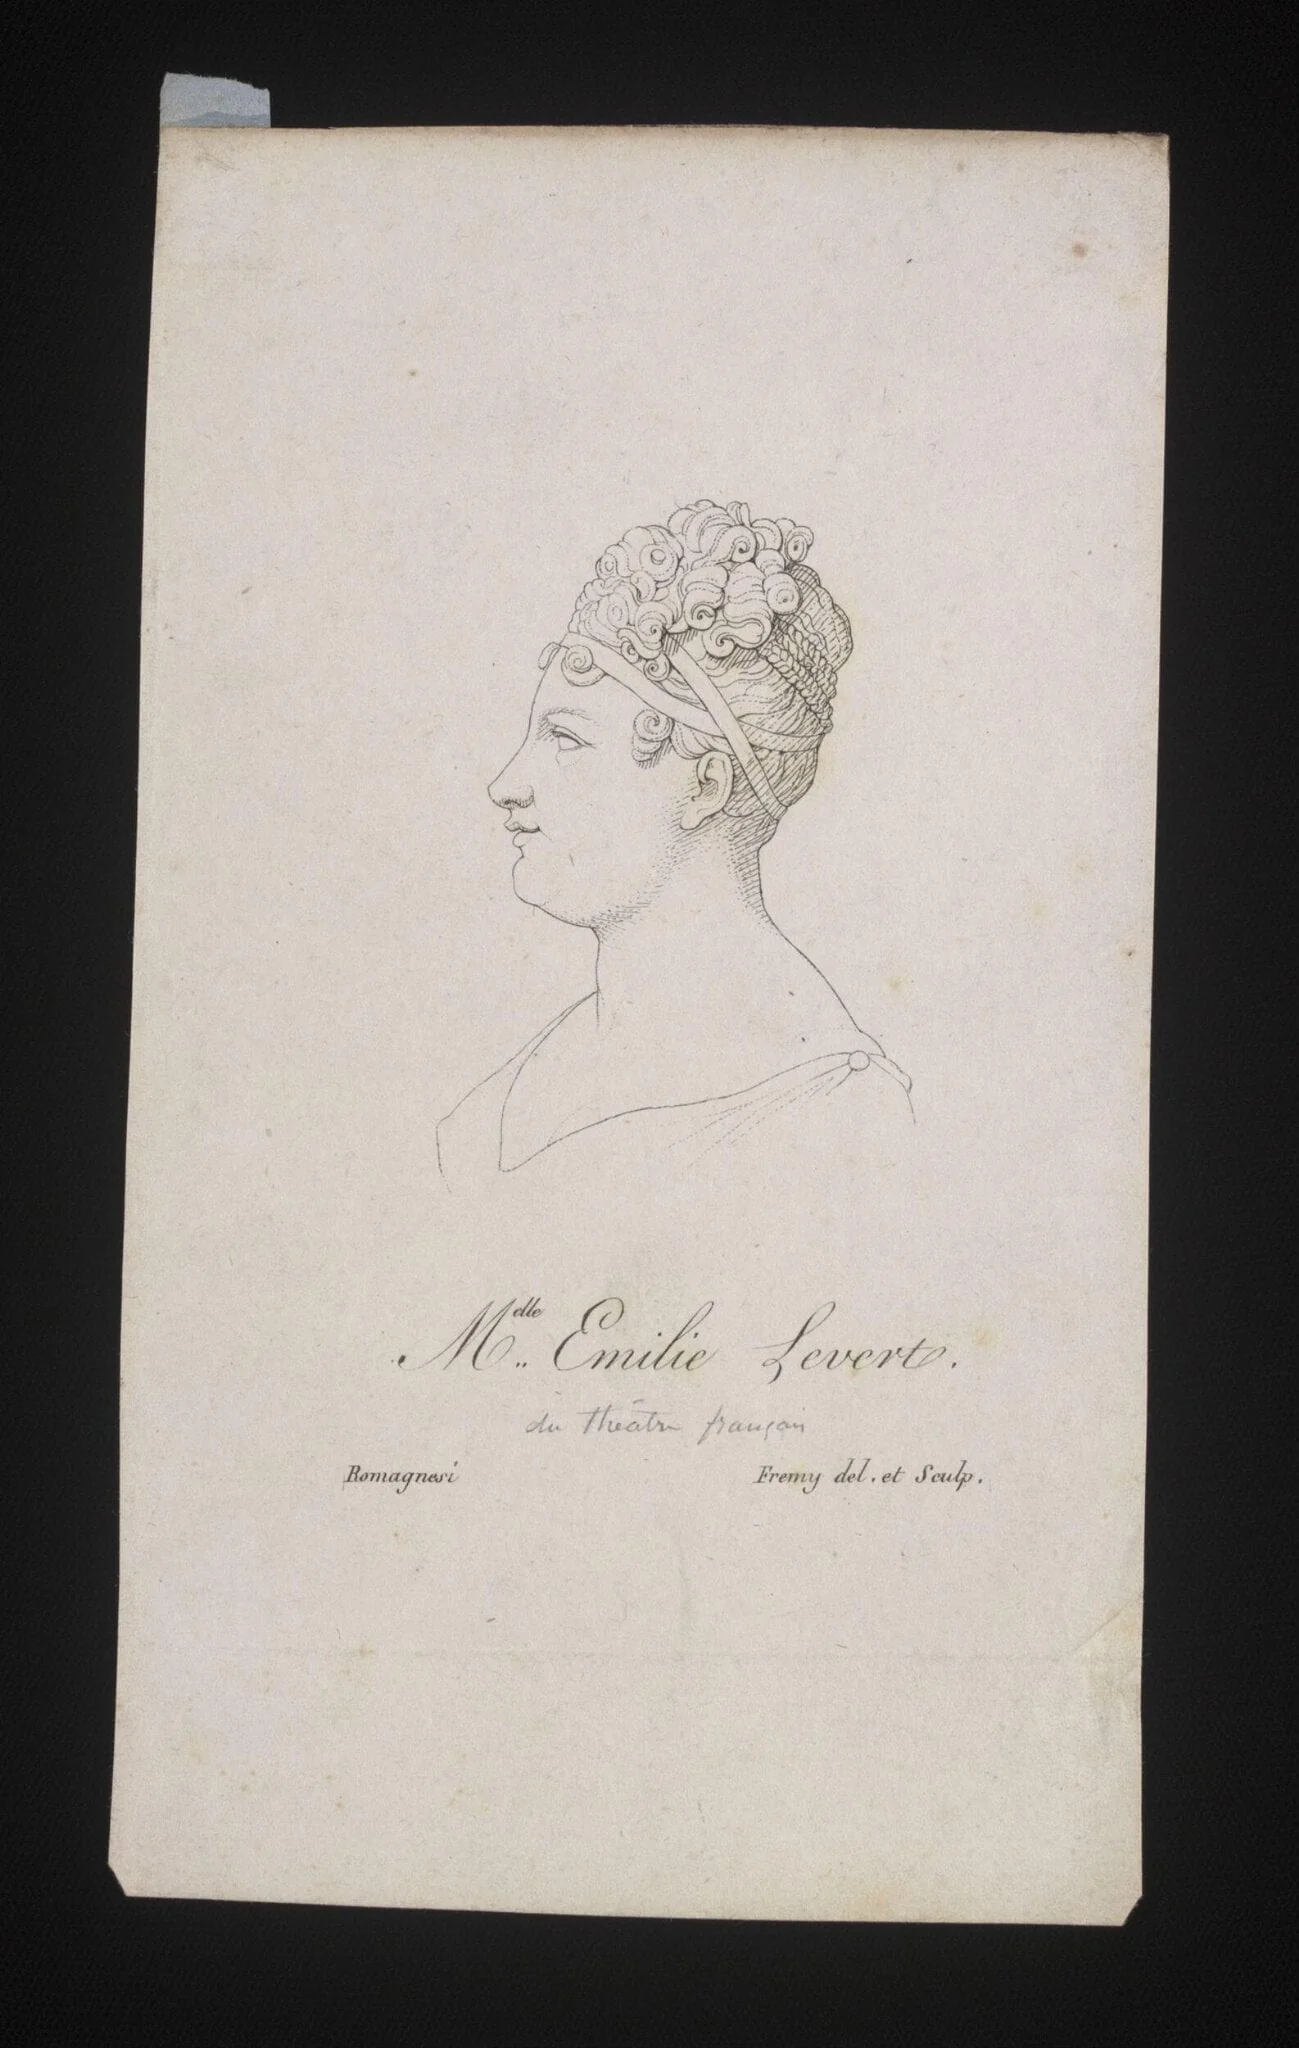 Melle Emilie Levert.
du théâtre français
Romagnesi
Fremy del. et Sculp.